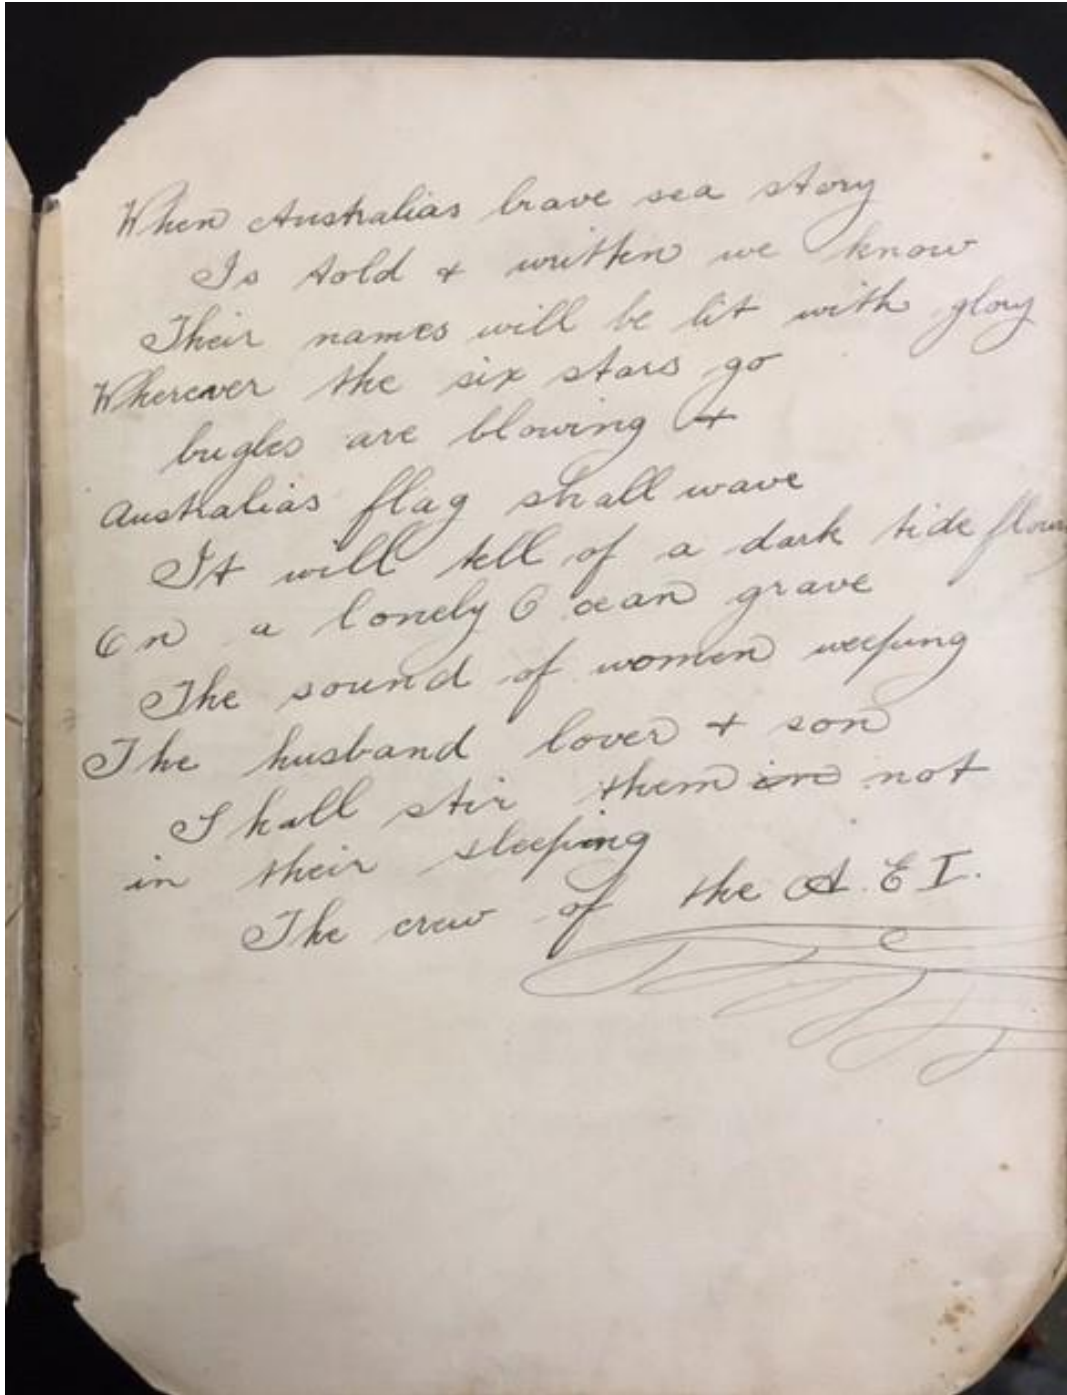 When Australias brave sea story
Is told & written we know
Their names will be lit with glory
Wherever the six stars go
bugles are blowing &
Australias flag shall wave
It will tell of a dark tide
On a lonely Ocean grave
The sound of women weeping
The husband lover & son
Shall stir them in not
in their sleeping
The crew of the A. E I.